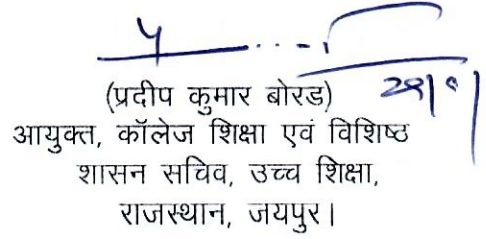 (प्रदीप कुमार बोरड)
आयुक्त, कॉलेज शिक्षा एवं विशिष्ठ
शासन सचिव, उच्च शिक्षा,
राजस्थान, जयपुर।